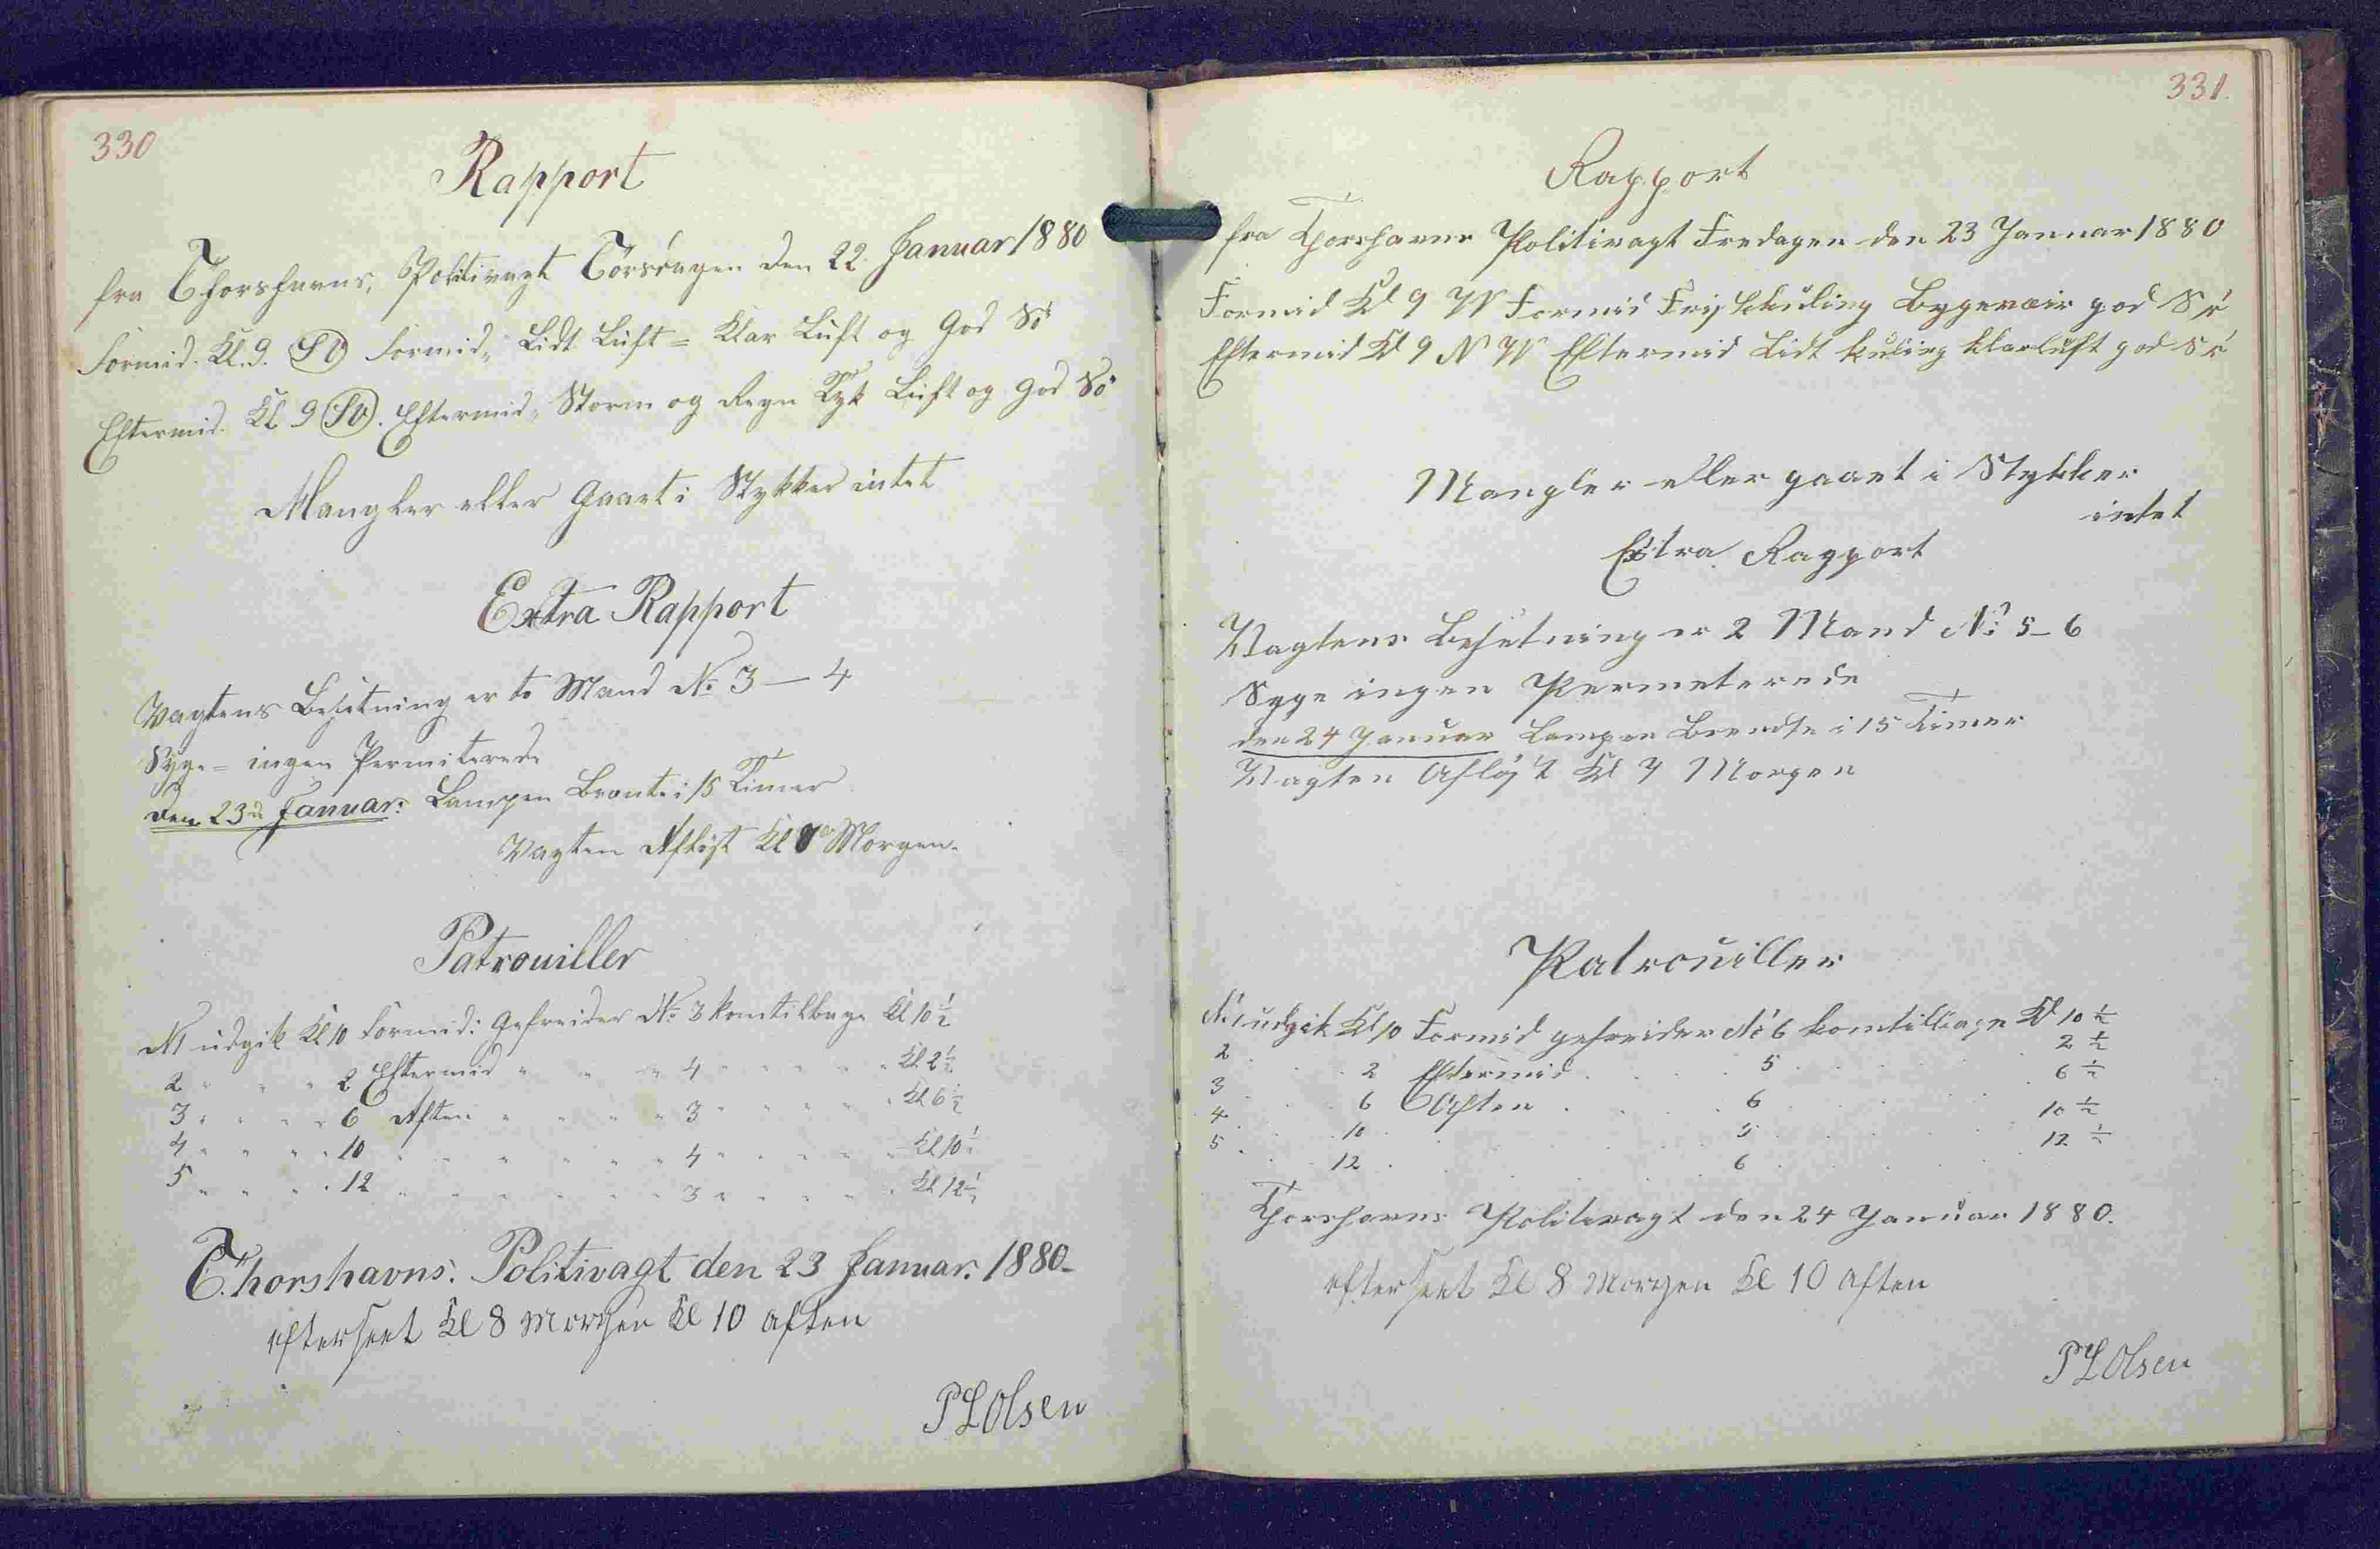 330
Rapport
fra Thorshavns, Politivagt Törsdagen den 22. Januar 1880
Formid. Kl. 9. SV Formid„ Lidt Luft = Klar Luft og God Sö
Eftermid. Kl 9 SV. Eftermid„ Storm og Regn Tyk Luft og God Sö
Mangler eller Gaaet i Stykker intet
Extra Rapport
Vagtens Besetning er to Mand No. 3 — 4
Syge = ingen Permiterede
den 23d Januar: Lampen Brænte i 15 Timer
Vagten Aflöst Kl Morgen.
Patrouiller
N1 udgik Kl 10 Formid: Gefreider No. 3 kom tilbage Kl 10 ½
2 " " " 2 Eftermid " " " 4 " " " " " Kl 2 ½
3 " " " " 6 Aften " " " " 3 " " " " " Kl 6 ½
4 " " " " 10 " " " " " " 4 " " " " " Kl 10 ½
5 " " " " 12 " " " " " " 3 " " " " " Kl 12 ½
Thorshavns: Politivagt den 23 Januar: 1880-
efterseet Kl 8 Morgen Kl 10 Aften
P L Olsen
331.
Rapport
fra Thorshavns Politivagt Fredagen den 23 Januar 1880
Formid Kl 9 W Formid Frisk kuling Bygeveir god Sö
Eftermid Kl 9 N W Eftermid Lidt kuling klar luft god Sö
Mangler eller gaaet i Stykker
intet
Extra Rapport
Vagtens Besetning er 2 Mand No: 5 - 6
Syge ingen Permeterede
den 24 Januar Lampen Brendte i 15 Timer
Vagten Aflöst Kl 7 Morgen
Patrouiller
No 1 udgik Kl 10 Formid gefreider No 6 kom tilbage Kl 10 ½
2 . . . 2 Eftermid . . . 5 . . . . . 2 ½
3 . . . 6 Aften . . . . 6 . . . . . 6 ½
4 . . . 10 . . . . . . 5 . . . . . 10 ½
5 . . . 12 . . . . . . 6 . . . . . 12 ½
Thorshavns Politivagt den 24 Januar 1880.
efterseet Kl 8 Morgen Kl 10 Aften
P L Olsen